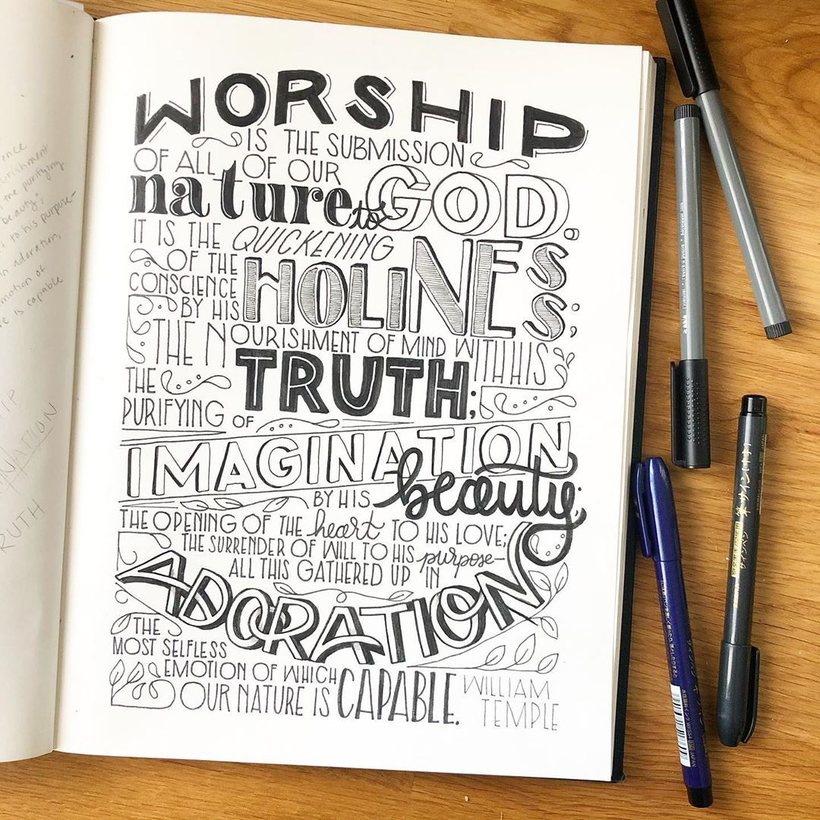 WORSHIP
IS THE SUBMISSION
OF ALL OF OUR
nature to GOD,
IT IS THE QUICKENING
OF THE
CONSCIENCE
BY HIS HOLINESS;
THE NOURISHMENT OF MIND WITH HIS
TRUTH;
THE
PURIFYING OF
IMAGINATION
BY HIS beauty;
THE OPENING OF THE heart TO HIS LOVE;
THE SURRENDER OF WILL TO HIS purpose—
ALL THIS GATHERED UP IN
ADORATION
THE
MOST SELFLESS
EMOTION OF WHICH
OUR NATURE IS CAPABLE.
WILLIAM
TEMPLE
the purifying
beauty;
to his purpose-
adoration,
is capable
RUTH